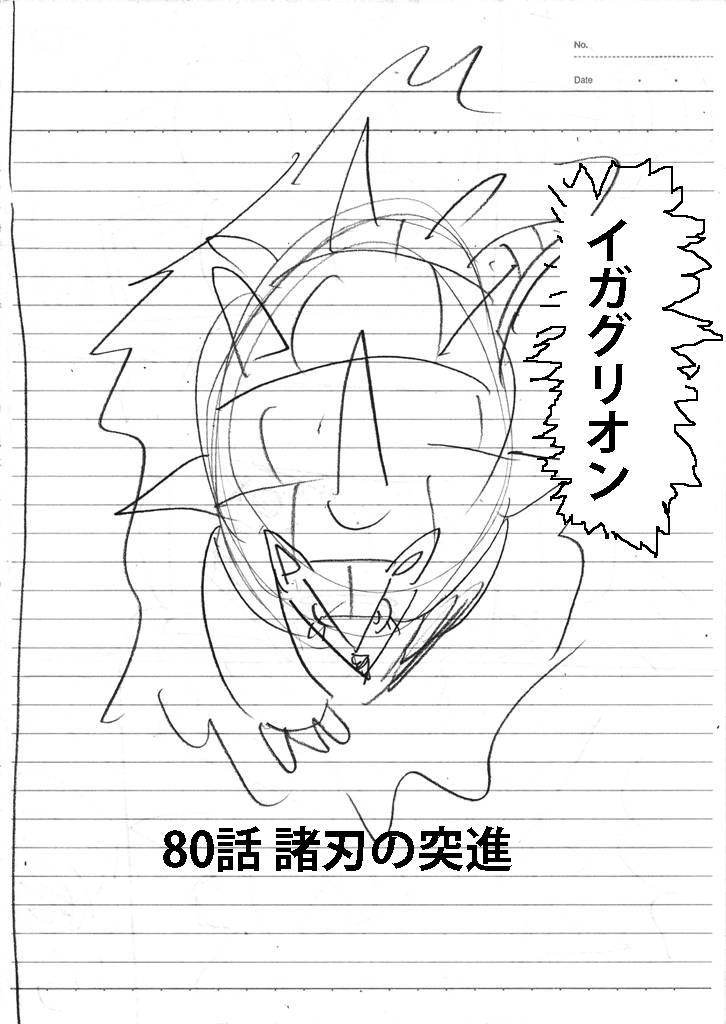 No.
Date
イガグリオン
80話 諸刃の突進